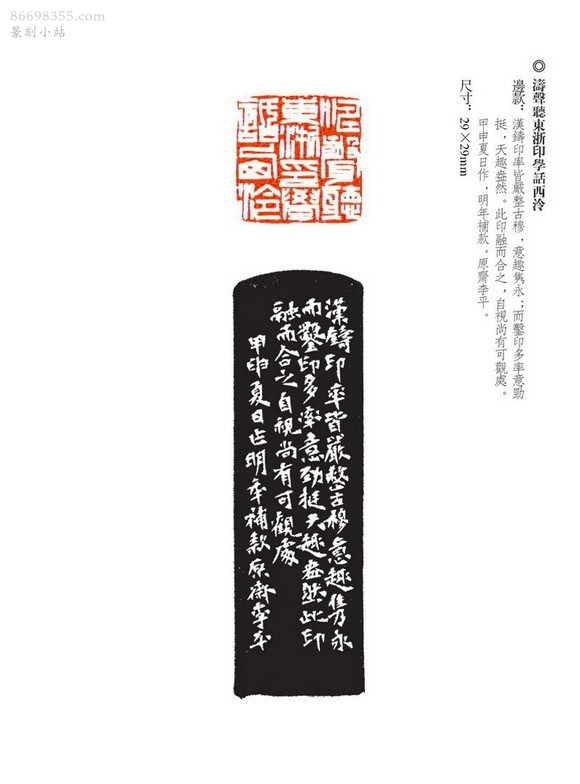 86698355.com
篆刻小站
◎ 濤聲聽東浙印學話西泠
邊款：漢鑄印率皆嚴整古穆，意趣雋永；而鑿印多率意勁
挺，天趣盎然。此印融而合之，自視尚有可觀處。
甲申夏日作，明年補款。原齋李平。
尺寸：29×29mm
濤聲聽
東浙印學
話西泠
漢鑄印率皆嚴整古穆意趣雋永
而鑿印多率意勁挺天趣盎然此印
融而合之自視尚有可觀處
甲申夏日作明年補款原齋李平